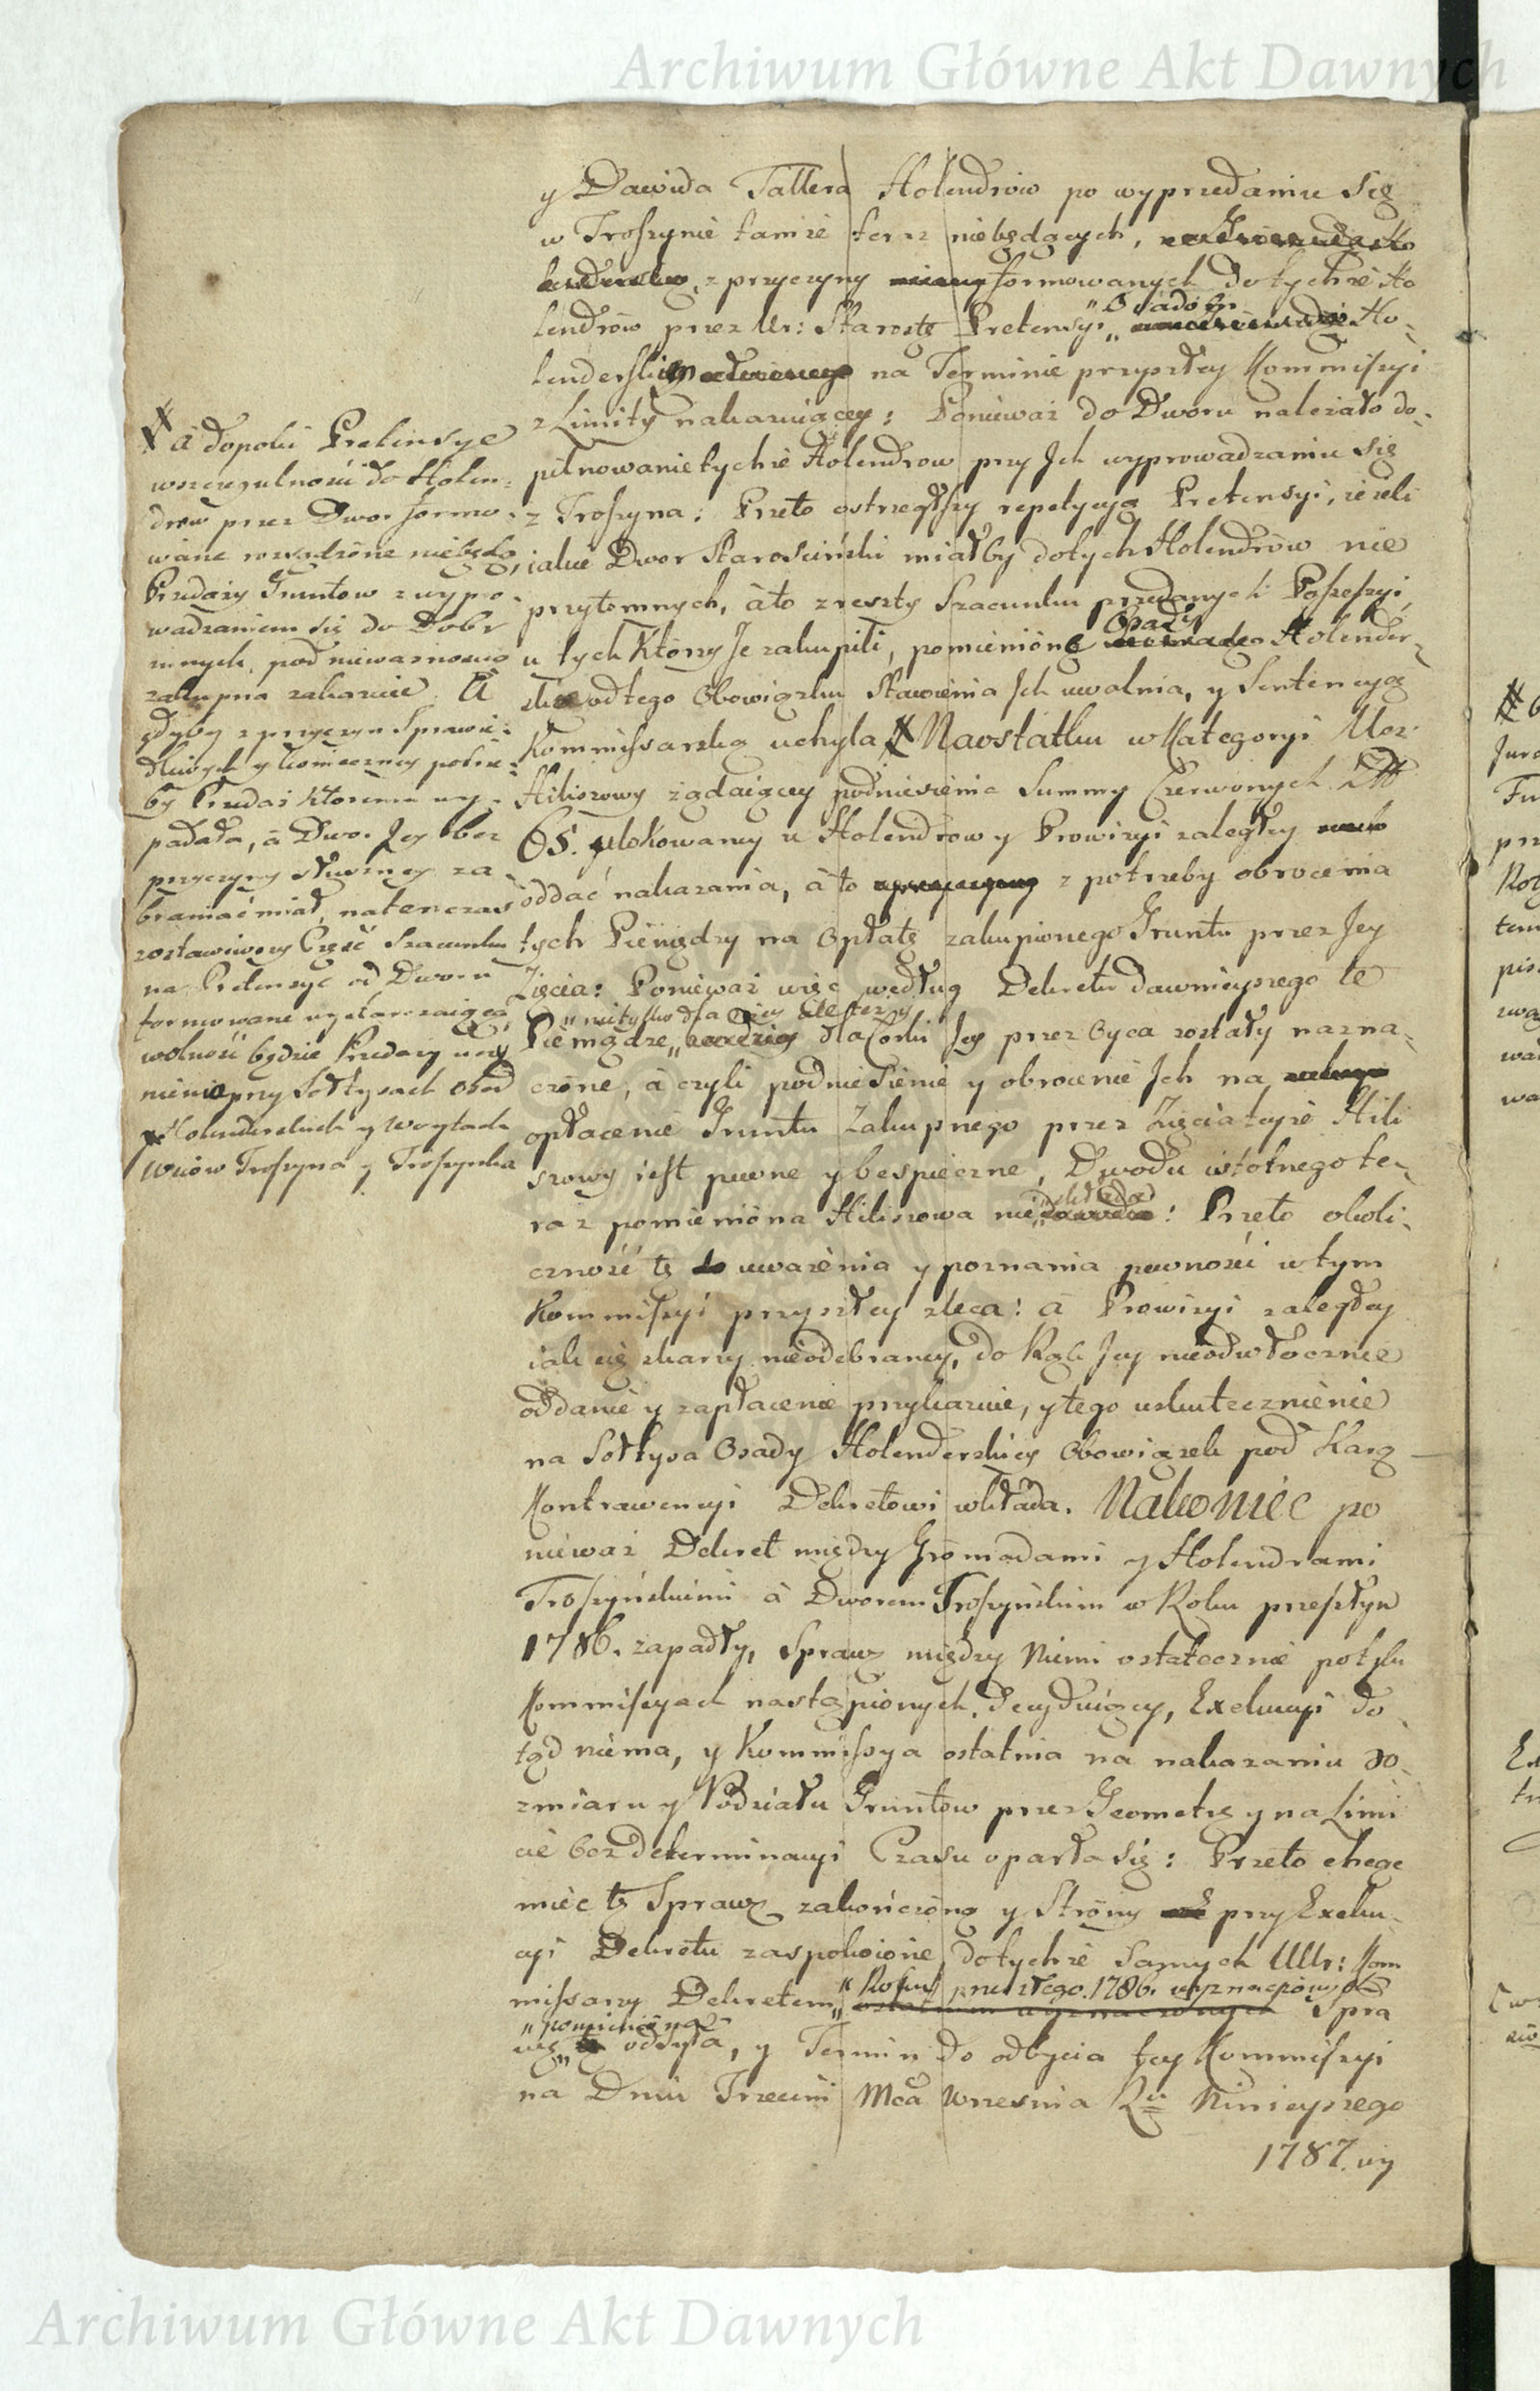 Archiwum Główne Akt Dawnych
y Dawida Tallera Holendrow po wyprzedaniu się
w Troszynie tamże teraz niebędących,
z przyczyny formowanych do tychże Ho
lendrów przez Ur: Starostę Pretensyi „Osadom Ho-
lenderskim na Terminie przyszłey Kommissyi
z Limity nakazuiącey: Ponieważ do Dworu należało do-
pilnowanie tychże Holendrow przy Ich wyprowadzaniu się
z Troszyna: Przeto ostrzegłszy repetycyą Pretensyi, ieżeli
iakie Dwor Starosciński miałby do tych Holendrów nie
przytomnych, à to z reszty Szacunku przedanych Possessyi,
u tych Którzy Je zakupili, pomienióne Osady Holender-
skie od tego Obowiązku Stawienia Ich uwalnia, y Sentencyą
Kommissarską uchyla # Naostatku w Kategoryi Ur
Hiliszowy żądaiącey podniesienia Summy Czerwonych Zł
65. ulokowaney u Holendrow y Prowizyi zaległey
oddać nakazania, à to z potrzeby obrocenia
tych Pieniędzy na Opłatę zakupionego Gruntu przez Jey
Zięcia: Ponieważ więc według Dekretu dawnieyszego te
„nietylko dla niey ale też y
Pieniądze „ dla Corki Jey przez Oyca zostały nazna-
czóne, à czyli podniesienie y obrocenie Ich na
opłacenie Gruntu Zakupnego przez Zięcia teyże Hili
szowy iest pewne y bespieczne, Dowodu istotnego te-
raz pomienióna Hiliszowa nie : Przeto okoli-
czność tę do uważenia y poznania pewności w tym
Kommissyi przyszłey zleca: à Prowizyi zaległey
iak się skarży nieodebraney, do Rąk Jey nieodwłocznie
oddanie y zapłacenie przykazuie, y tego uskutecznienie
na Sołtysa Osady Holenderskiey Obowiązek pod Karą
Kontrawencyi Dekretowi wkłada. Nakoniec po
nieważ Dekret między Gromadami y Holendrami
Troszyńskiemi à Dworem Troszyńskim w Roku przeszłym
1786. zapadły, Sprawę między Niemi ostatecznie po tylu
Kommissyach nastąpionych, decyduiący, Exekucyi do-
tąd niema, y Kommissya ostatnia na nakazaniu ro-
zmiaru y Podziału Gruntow przez Geometrę y na Limi
cie bez determinacyi Czasu oparła się: Przeto chcąc
mieć tę Sprawę zakończóną y Stróny przy Exeku-
cyi Dekretu zaspokoióne, do tychże Samych UUr: Kom
missarzy Dekretem „Roku przeszłego 1786. wyznaczónych Spra
wę „pomienióną odsyła, y Termin do odbycia tey Kommissyi
na Dniu Trzecim Mca Wrzesnia Ru Ninieyszego
1787. wy
# à dopoki Pretensye
wszczegulności do Holen-
drow przez Dwor formo-
wane rozsądzóne niebędą,
Przedaży Gruntow z wypro-
wadzaniem się do Dobr
innych, pod nieważnością
zakupna zakazuie. A
gdyby z przyczyn Sprawie-
dliwych y konieczney potrze-
by Przedaż Ktoremu wy-
padała, à Dwor Jey bez
przyczyny słuszney za-
braniać miał, natenczas
zostawiwszy Część Szacunku
na Pretensye od Dworu
formowane wystarczaiącą,
wolność będzie Przedaży uczy
nienia przy Sołtysach Osad
Holenderskich y Woytach
Wsiów Troszyna y Troszynka
Archiwum Główne Akt Dawnych